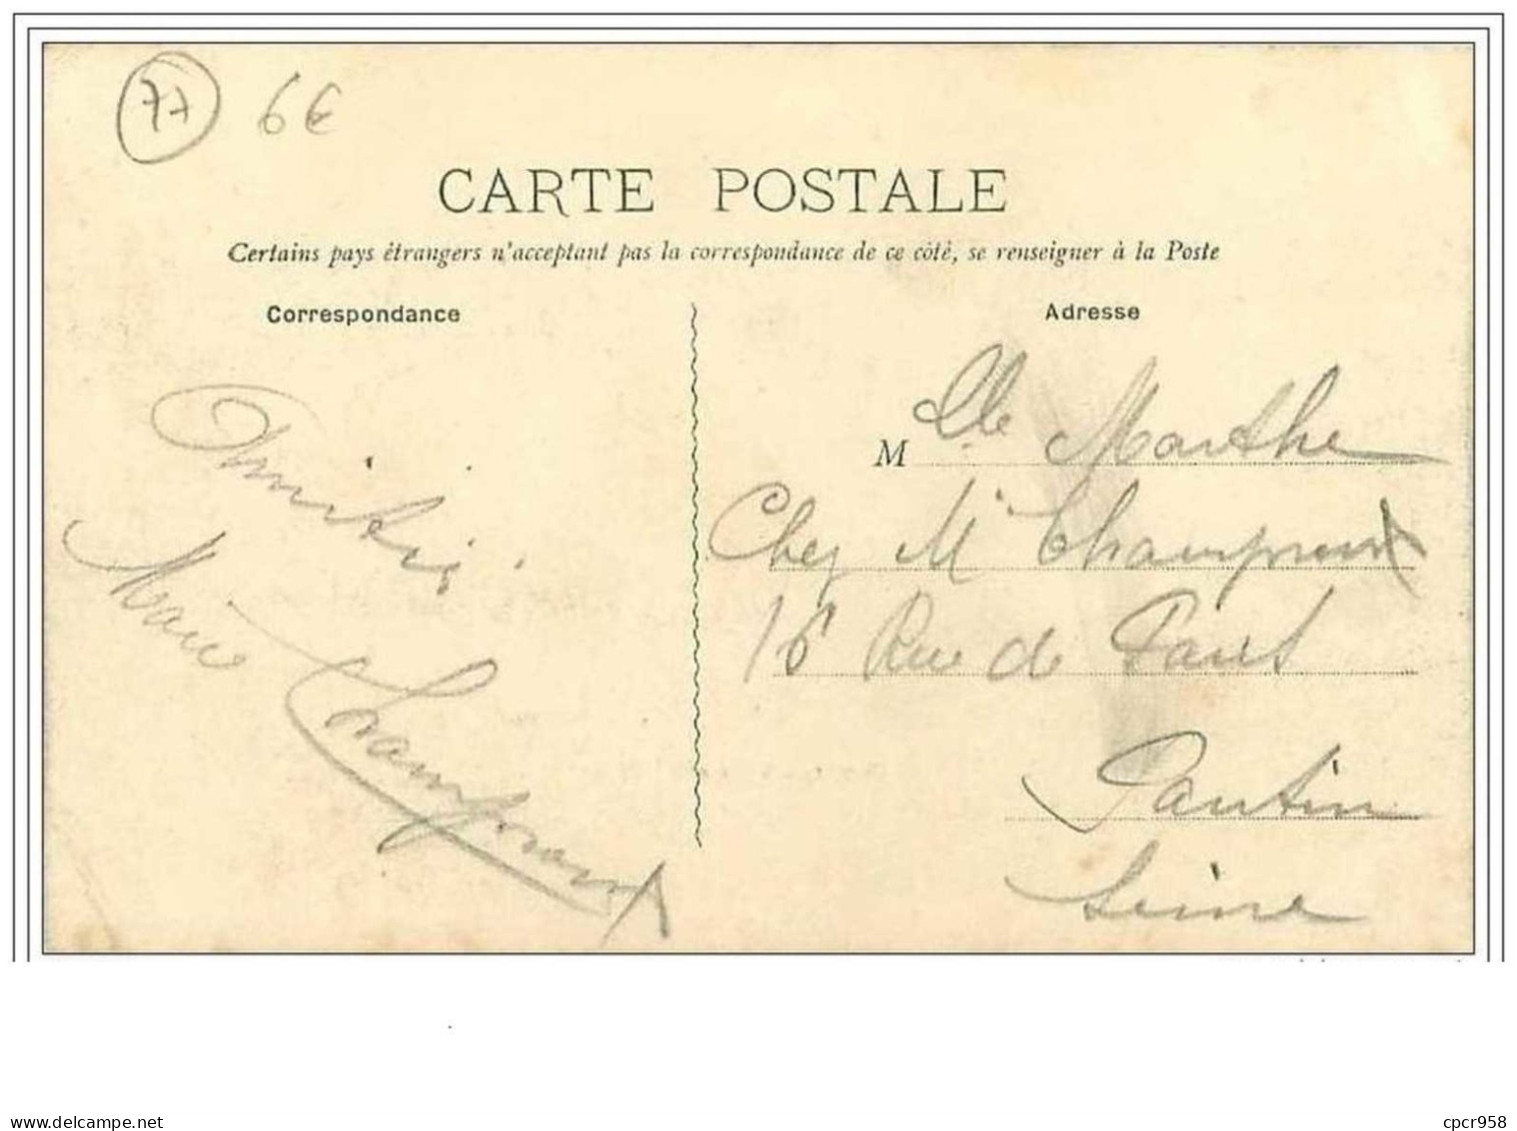 77 6€
CARTE POSTALE
Certains pays étrangers n'acceptant pas la correspondance de ce côté, se renseigner à la Poste
Correspondance
Adresse
Amitiés
Marie Champroux
Mlle Marthe
Chez Mr Champroux
16 Rue de Paris
Pantin
Seine
delcampe.net
cpcr958